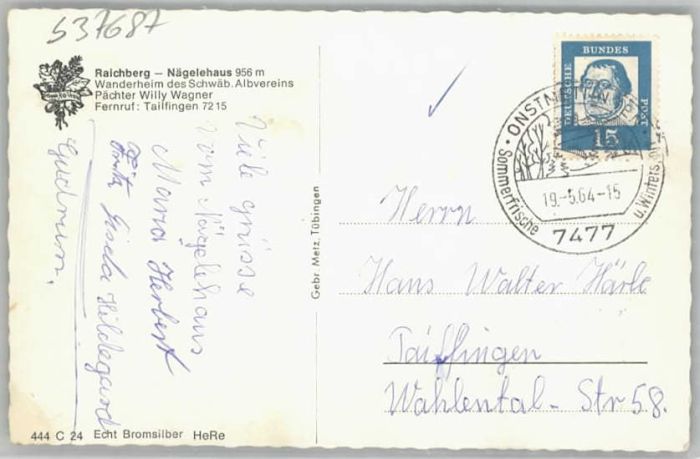 537687
Raichberg – Nägelehaus 956 m
Wanderheim des Schwäb. Albvereins
Pächter Willy Wagner
Fernruf: Tailfingen 7215
Viele Grüsse
vom Nägelehaus
Maria Herbert
Fritz Gisela Hildegard
Gudrun,
444 C 24 Echt Bromsilber HeRe
Gebr Metz, Tübingen
DEUTSCHE BUNDESPOST
15
ONSTMETTINGEN
Sommerfrische u. Winters
19.-5.64-15
7477
Herrn
Hans Walter Härle
Tailfingen
Wahlental- Str 58.